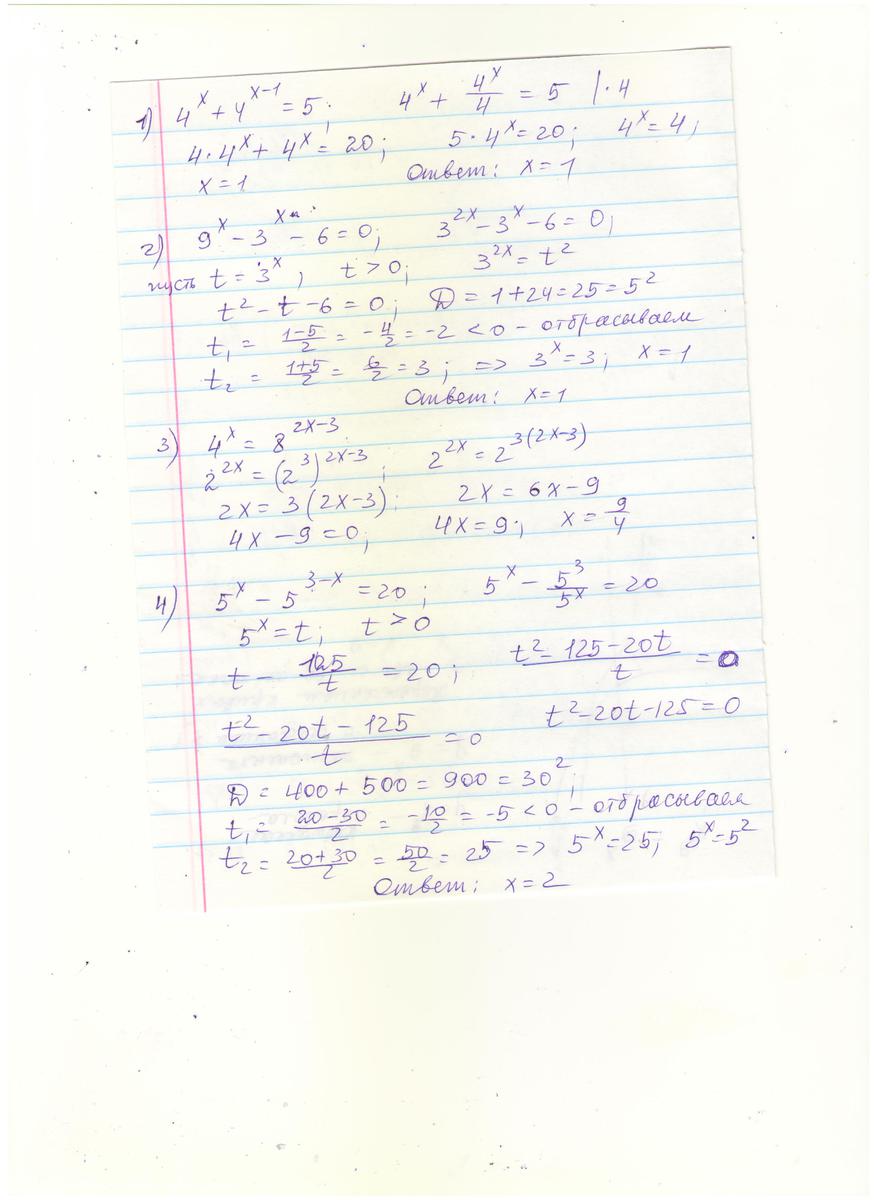 1) 4^x + 4^(x-1) = 5; 4^x + 4^x/4 = 5 | · 4
4 · 4^x + 4^x = 20; 5 · 4^x = 20; 4^x = 4;
x = 1 Ответ: x = 1
2) 9^x - 3^x - 6 = 0; 3^(2x) - 3^x - 6 = 0;
пусть t = 3^x; t > 0; 3^(2x) = t^2
t^2 - t - 6 = 0; D = 1 + 24 = 25 = 5^2
t₁ = (1-5)/2 = -4/2 = -2 < 0 - отбрасываем
t₂ = (1+5)/2 = 6/2 = 3; => 3^x = 3; x = 1
Ответ: x = 1
3) 4^x = 8^(2x-3)
2^(2x) = (2^3)^(2x-3); 2^(2x) = 2^(3(2x-3))
2x = 3(2x-3); 2x = 6x - 9
4x - 9 = 0; 4x = 9; x = 9/4
4) 5^x - 5^(3-x) = 20; 5^x - 5^3/5^x = 20
5^x = t; t > 0
t - 125/t = 20; (t^2 - 125 - 20t)/t = 0
(t^2 - 20t - 125)/t = 0 t^2 - 20t - 125 = 0
D = 400 + 500 = 900 = 30^2;
t₁ = (20-30)/2 = -10/2 = -5 < 0 - отбрасываем
t₂ = (20+30)/2 = 50/2 = 25 => 5^x = 25; 5^x = 5^2
Ответ: x = 2